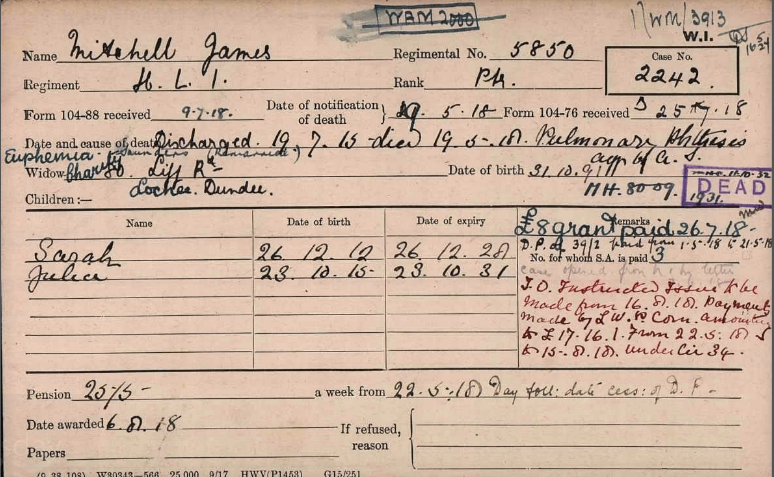 WBM 2000 1) WM/3913
W.I.
Name Mitchell James Regimental No. 5850 Case No.
Regiment H. L. I. Rank Pte. 2242.
Form 104-88 received 9-7-18. Date of notification of death } 5.18 Form 104-76 received 25 18
Date and cause of death Discharged. 19.7.15 died 19.5.18. Pulmonary Phthisis
agg by A. S.
Euphemia Charity (Remarried)
Widow 80. Liff Rd Date of birth 31.10.91
Lochee. Dundee. MH.8009. DEAD
Children :— 1931.
Name Date of birth Date of expiry Remarks
£8 grant paid 26.7.18-
D.P. of 39/2 paid from 1-5-18 to 21-5-18
No. for whom S.A. is paid 3
Sarah 26.12.12 26.12.28
Julia 23.10.15- 23.10.31
I.O. Instructed Issue to be
made from 16.8.18. Payments
made by L.W.P. Com. amounting
to £17-16.1. From 22.5.18
to 15-8.18. under Cir 34.
Pension 25/5- a week from 22.5-18 Day foll: date cess: of D.P.-
Date awarded 6.8.18 If refused, reason
Papers
(9 38 108) W30343—566 25,000 9/17 HWV(P1453) G15/251